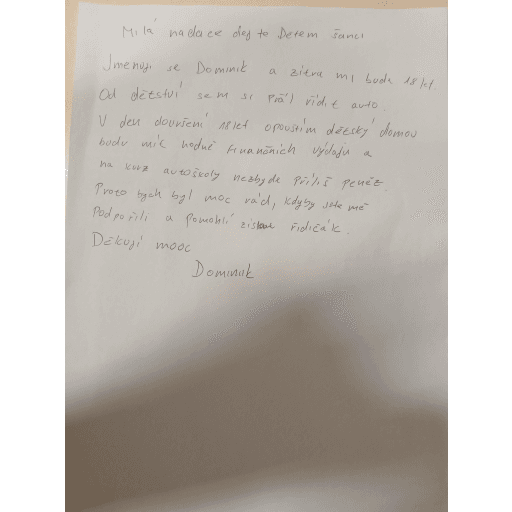 Milá nadace dej to Detem šanci
Jmenuji se Dominik a zítra mi bude 18 let.
Od dětství sem si přál řídit auto.
V den dovršení 18 let opouštím dětský domov
budu mít hodně finančních výdaju a
na kurz autoškoly nezbyde příliš peněz.
Proto bych byl moc rád, kdyby ste mě
Podpořili a pomohli získat řidičák.
Děkuji mooc
Dominik